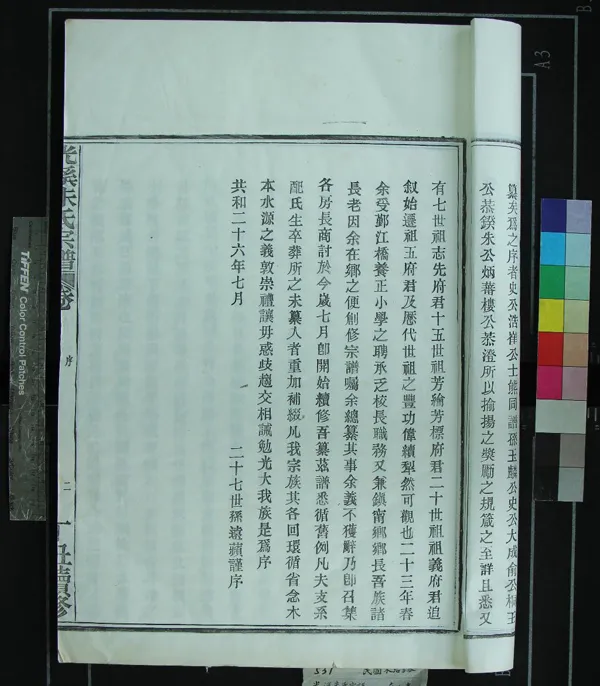 纂矣為之序者史公浩徉公士熊同譜孫玉麟公史公大成俞公樾王
公恭鍨朱公炳蕃樓公恭澄所以揄揚之獎勵之規箴之至詳且悉又
有七世祖志先府君十五世祖芳綸芳標府君二十世祖祖義府君追
叙始遷祖五府君及歷代世祖之豐功偉績犁然可觀也二十三年春
余受鄞江橋養正小學之聘承乏校長職務又兼鎮甯鄉鄉長吾族諸
長老因余在鄉之便創修宗譜囑余總纂其事余義不獲辭乃即召集
各房長商討於今歲七月卽開始續修吾纂茲譜悉循舊例凡夫支系
配氏生卒葬所之未纂人者重加補綴凡我宗族其各回環循省念木
本水源之義敦崇禮讓毋惑歧趨交相誡勉光大我族是為序
共和二十六年七月
二十七世孫遠蘋謹序
光溪朱氏宗譜
卷
序
二
丁丑續修
TIFFEN Color Control Patches
A3
B
531